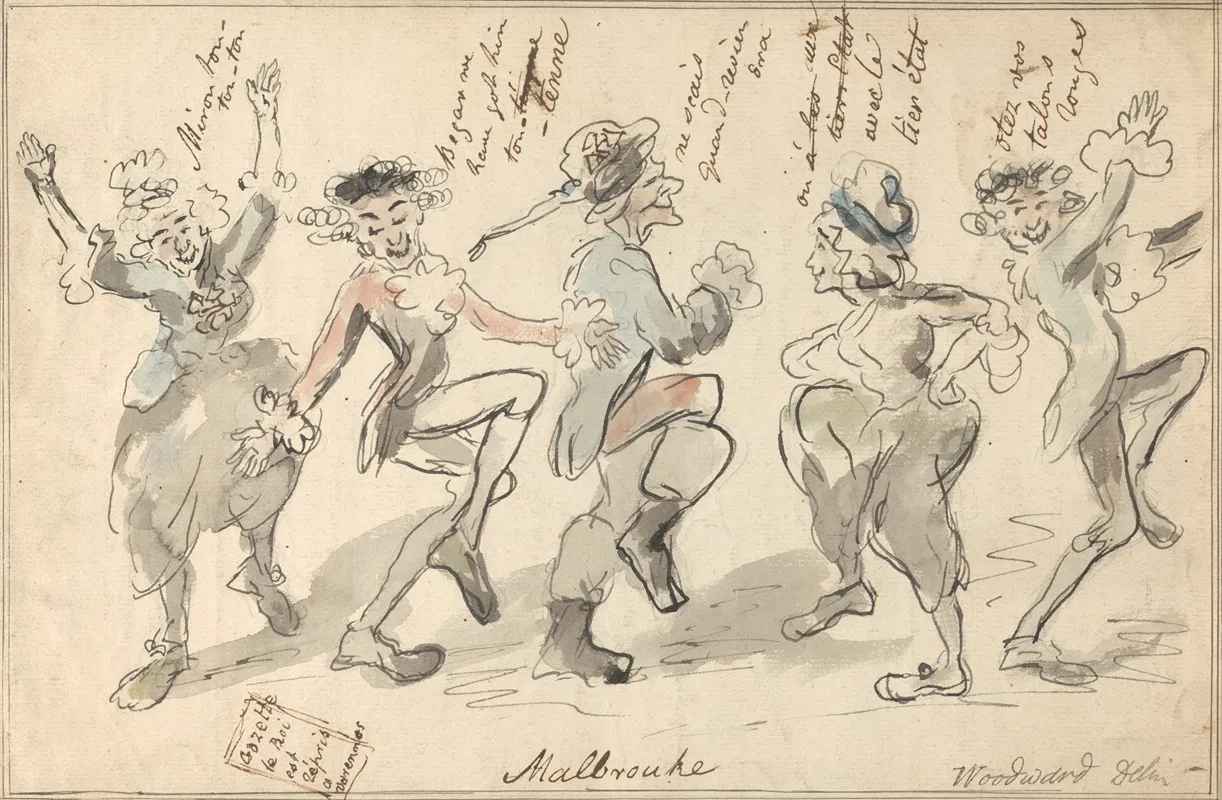 Miron ton-
ton-ton
Begar we
have got him
ton-taine
-tenne
ne scais
quand-revien
dra
où à bas aux
tiers Etat
avec le
tier état
otez vos
talons
rouges
Gazette
le Roi
est
repris
a
varennes
Malbrouke
Woodward Delin